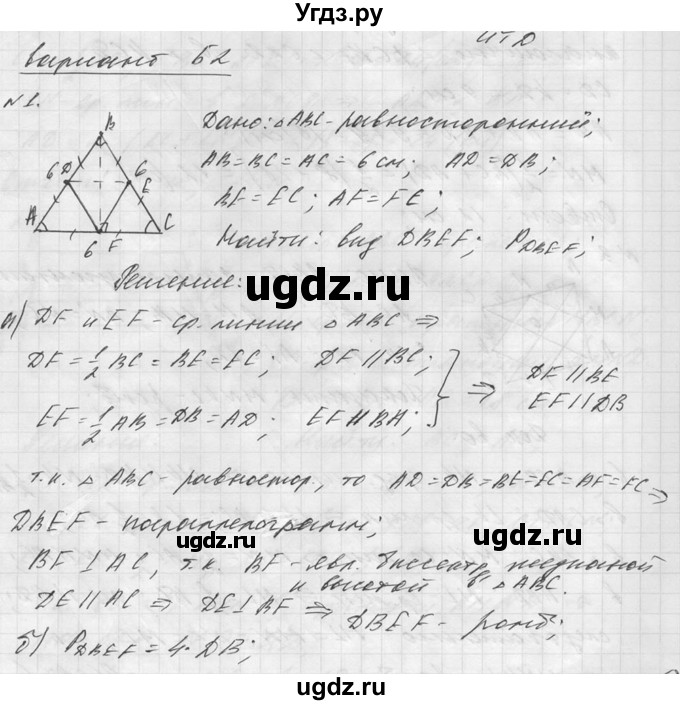 Угдз.ру
ЧТД
Вариант Б2
№1.
B
6 D 6 E
A 6 F C
Дано: △ABC - равносторонний;
AB = BC = AC = 6 см; AD = DB;
BE = EC; AF = FC;
Найти: вид DBEF; P_DBEF;
Решение:
ugdz.ru
а) DF и EF - ср. линии △ABC ⇒
DF = 1/2 BC = BE = EC; DF ∥ BC;
EF = 1/2 AB = DB = AD; EF ∥ BA;
} ⇒ DF ∥ BE
EF ∥ DB
т.к. △ABC - равностор., то AD = DB = BE = EC = AF = FC ⇒
DBEF - параллелограмм;
ugdz.ru ugdz.ru
BF ⊥ AC, т.к. BF - явл. биссектр, медианой
и высотой в △ABC.
DE ∥ AC ⇒ DE ⊥ BF ⇒ DBEF - ромб;
б) P_DBEF = 4 · DB;
ugdz.ru